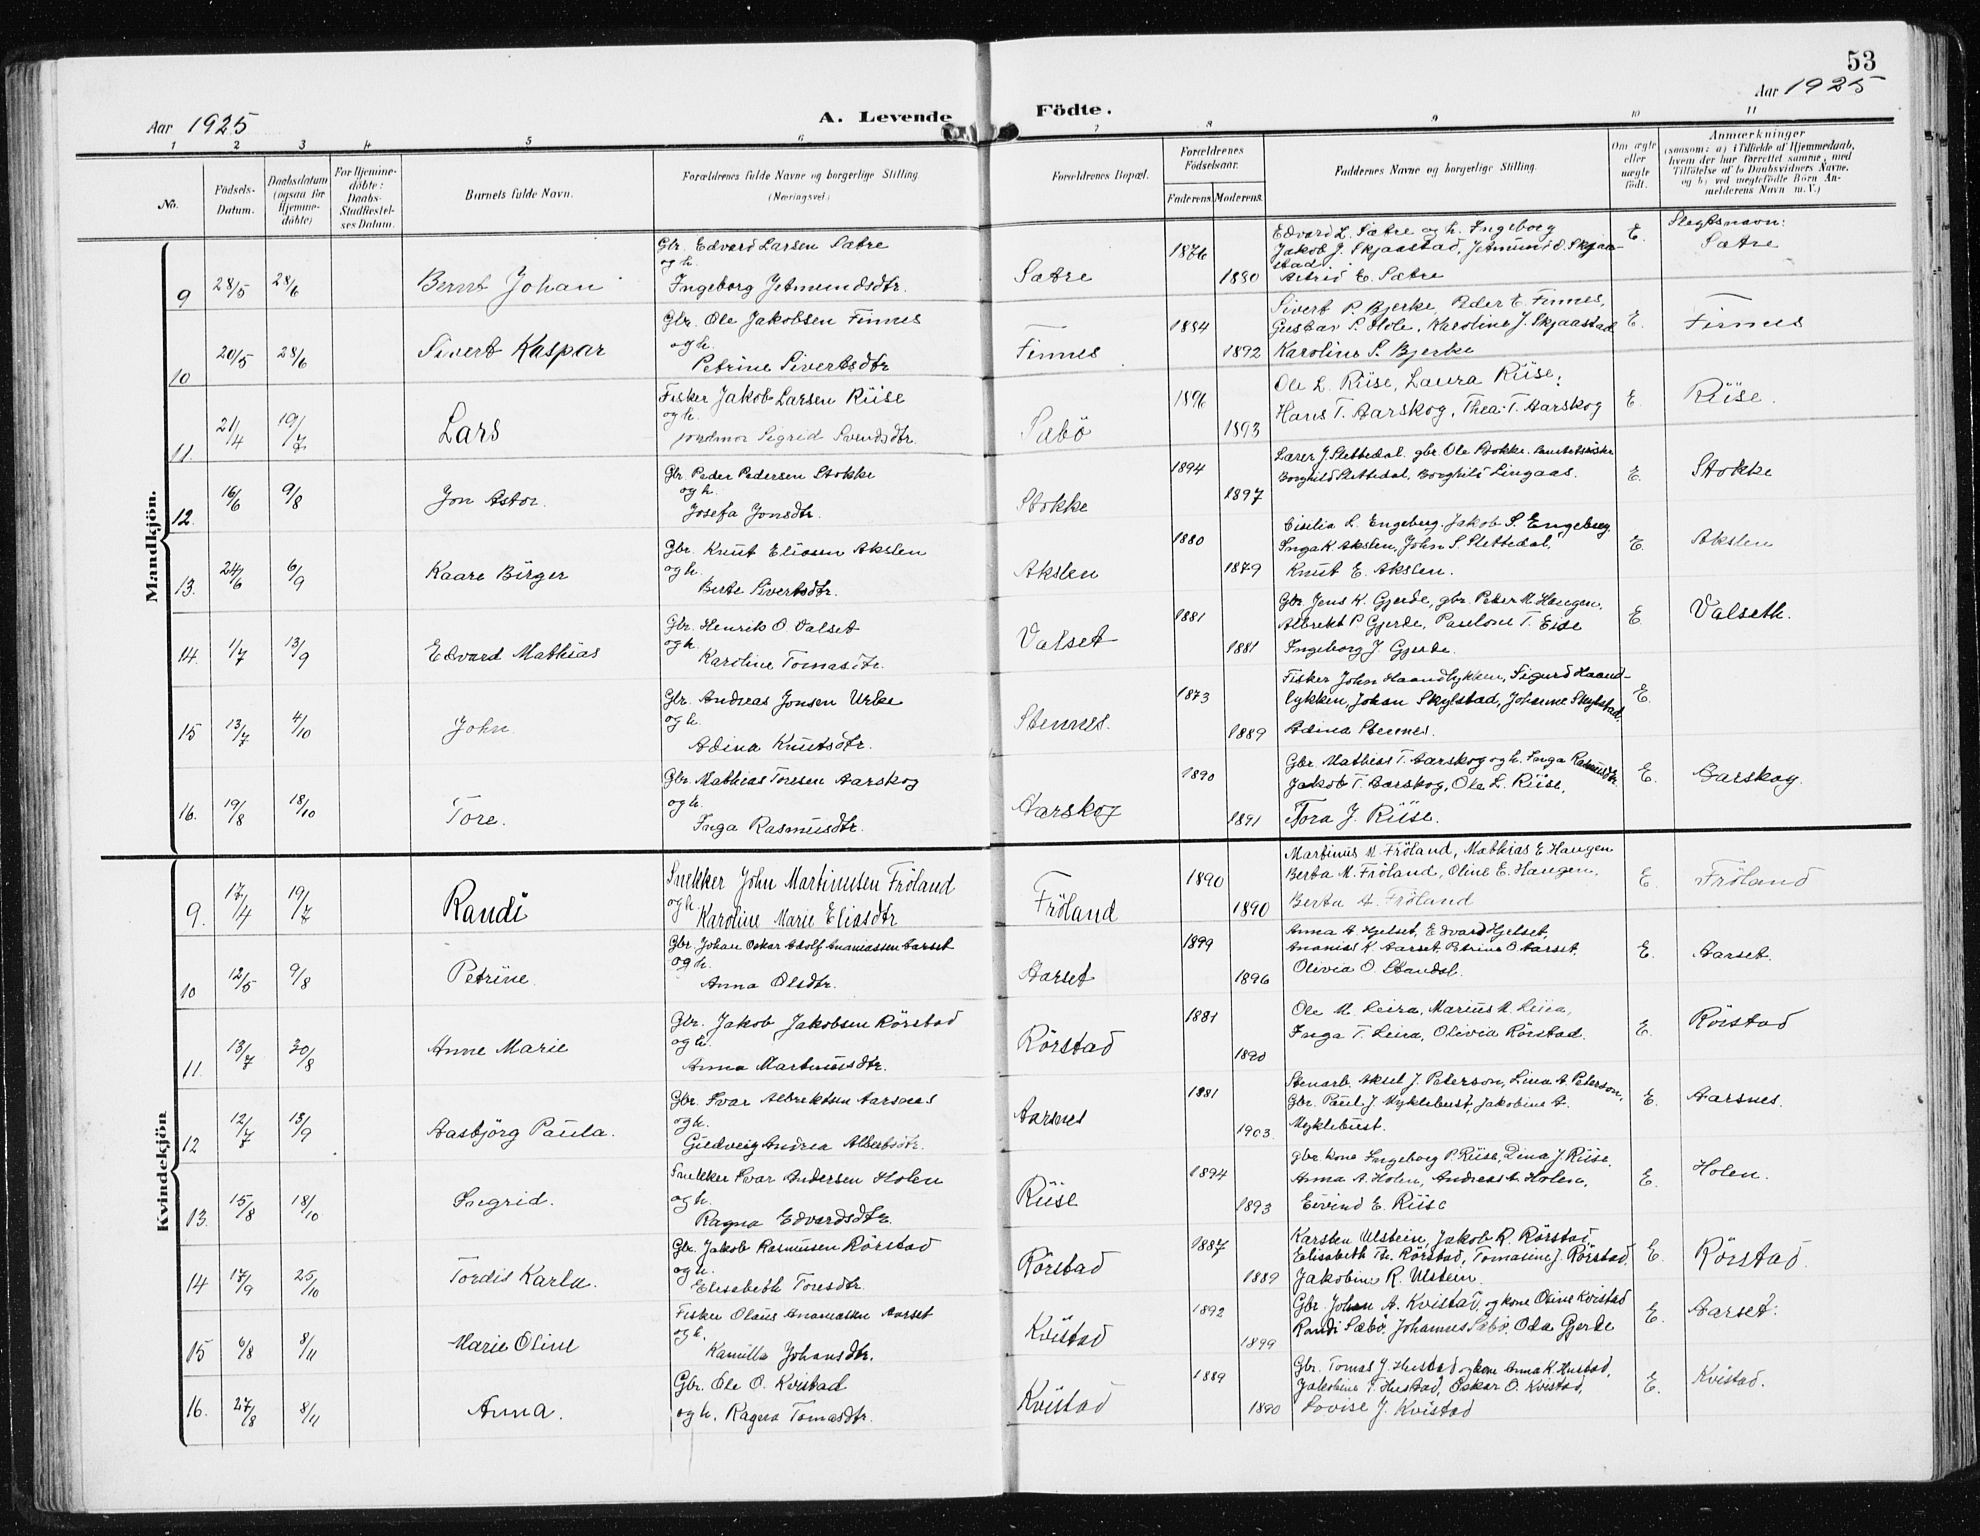 53
Aar 1925
A. Levende Födte.
Aar 1925
1 2 3 4 5 6 7 8 9 10 11
No.
Födsels-Datum.
Daabsdatum (ogsaa for Hjemmedöbte)
For Hjemmedöbte: Daabs-Stadfæstelses Datum.
Barnets fulde Navn.
Forældrenes fulde Navne og borgerlige Stilling (Næringsvei.)
Forældrenes Bopæl.
Forældrenes Födselsaar.
Faderens. Moderens.
Faddernes Navne og borgerlige Stilling.
Om ægte eller uægte födt.
Anmærkninger (saasom: a) i Tilfælde af Hjemmedaab, hvem der har forrettet samme, med Tilföielse af to Daabsvidners Navne, og b) ved uægtefödte Börn Anmelderens Navn m. V.)
Mandkjön.
9 28/5 28/6 Bernt Johan
Gbr. Edvard Larsen Sætre
og h.
Ingeborg Jetmundsdtr.
Sætre 1876 1880
Edvard L. Sætre og h. Ingeborg
Jakob J. Skjaastad, Jetmund O. Skjaa-
stad
Astrid E. Sætre
E. Slegtsnavn:
Sætre
10 20/5 28/6 Sivert Kaspar
Gbr. Ole Jakobsen Finnes
og h.
Petrine Sivertsdtr
Finnes 1884 1892
Sivert P. Bjerke, Peder E. Finnes,
Gustav S. Hole, Karoline J. Skjaastad
Karoline S. Bjerke
E. Finnes
11 21/4 19/7 Lars
Fisker Jakob Larsen Riise
og h.
jordmor Sigrid Svendsdtr.
Sæbö 1896 1893
Ole L. Riise, Laura Riise,
Hans T. Aarskog, Thea T. Aarskog
E. Riise.
12. 16/6 9/8 Jon Astor.
Gbr. Peder Pedersen Stokke
og h.
Josefa Jonsdtr.
Stokke 1894 1897
Lærer J. Slettedal. gbr. Ole Stokke.
Borghild Slettedal, Borghild Lingaas.
E. Stokke
13. 24/6 6/9 Kaare Birger
Gbr. Knut Eliasen Akslen
og h.
Berte Sivertsdtr.
Akslen 1880 1879
Cisilia L. Engeberg. Jakob S. Engeberg
Inga K. Akslen, John S. Slettedal,
Knut E. Akslen.
E. Akslen
14. 1/7 13/9 Edvard Mathias
Gbr. Henrik O. Valset
og h.
Karoline Tomasdtr.
Valset 1881 1881
Gbr. Jens K. Gjerde, gbr. Peter M. Haugen,
Albrekt P. Gjerde, Pauline T. Eide
Ingeborg J. Gjerde.
E. Valseth.
15 13/7 4/10 John.
Gbr. Andreas Jonsen Urke
og h.
Adina Knutsdtr.
Stennes. 1873 1889
Fisker John Haandlykken, Sigurd Haand-
lykken, Johan Skylstad, Johanne Skylstad,
Adina Stennes.
E.
16. 19/8 18/10 Tore.
Gbr. Mathias Toresen Aarskog
og h.
Inga Rasmusdtr.
Aarskog 1890 1891
Gbr. Mathias T. Aarskog og h. Inga Rasmusdtr.
Jakob T. Aarskog, Ole L. Riise,
Tora J. Riise.
E. Aarskog.
Kvindekjön
9. 17/4 19/7 Randi
Snekker John Martinusen Fröland
og h
Karoline Marie Eliasdtr
Fröland 1890 1890
Martinus M. Fröland, Mathias E. Haugen
Berta M. Fröland, Oline E. Haugen.
Berta A. Fröland
E. Fröland
10 12/5 9/8 Petrine.
Gbr. Johan Oskar Adolf Ananiassen Aarset
og h.
Anna Olsdtr.
Aarset 1899 1896
Anna A. Hjelset, Edvard Hjelset,
Ananias K. Aarset, Petrine O. Aarset,
Olivia O. Standal.
E. Aarset.
11. 13/7 30/8 Anne Marie
Gbr. Jakob Jakobsen Rörstad
og h.
Anna Martinusdtr.
Rörstad 1881 1890
Ole M. Leira, Marius M. Leira,
Inga T. Leira, Olivia Rörstad.
E. Rörstad
12 12/7 13/9 Aasbjörg Paula.
Gbr. Ivar Albrektsen Aarsnes
og h.
Gudveig Andrea Albertsdtr.
Aarsnes 1881 1903.
Stenarb. Aksel J. Peterson, Lina A. Peterson,
Gbr. Paul J. Myklebust, Jakobine A.
Myklebust.
E. Aarsnes.
13. 15/8 18/10 Ingrid.
Snekker Ivar Andersen Holen
og h.
Ragna Edvardsdtr.
Riise 1894 1893
gbr. kone Ingeborg P. Riise, Dina J. Riise.
Anna A. Holen, Andreas A. Holen,
Eivind E. Riise
E. Holen.
14 17/9 25/10 Tordis Karla.
Gbr. Jakob Rasmusen Rörstad
og h.
Elisabeth Toresdtr.
Rörstad 1887 1889
Karsten Ulstein, Jakob R. Rörstad,
Elisabeth Th. Rörstad, Tomasine J. Rörstad,
Jakobine R. Ulstein.
E. Rörstad.
15 6/8 8/11 Marie Oline
Fisker Olaus Ananiassen Aarset
og h.
Kamilla Johansdtr.
Kvistad 1892 1899
Gbr. Johan A. Kvistad, og kone Oline Kvistad
Randi Sæbö, Johannes Sæbö, Oda Gjerde
E. Aarset.
16. 27/8 8/11 Anna.
Gbr. Ole O. Kvistad
og h. Ragna Tomasdtr.
Kvistad 1889 1890
Gbr. Tomas J. Hustad og kone Anna K. Hustad,
Jakobine T. Hustad, Oskar O. Kvistad,
Lovise J. Kvistad
E. Kvistad.